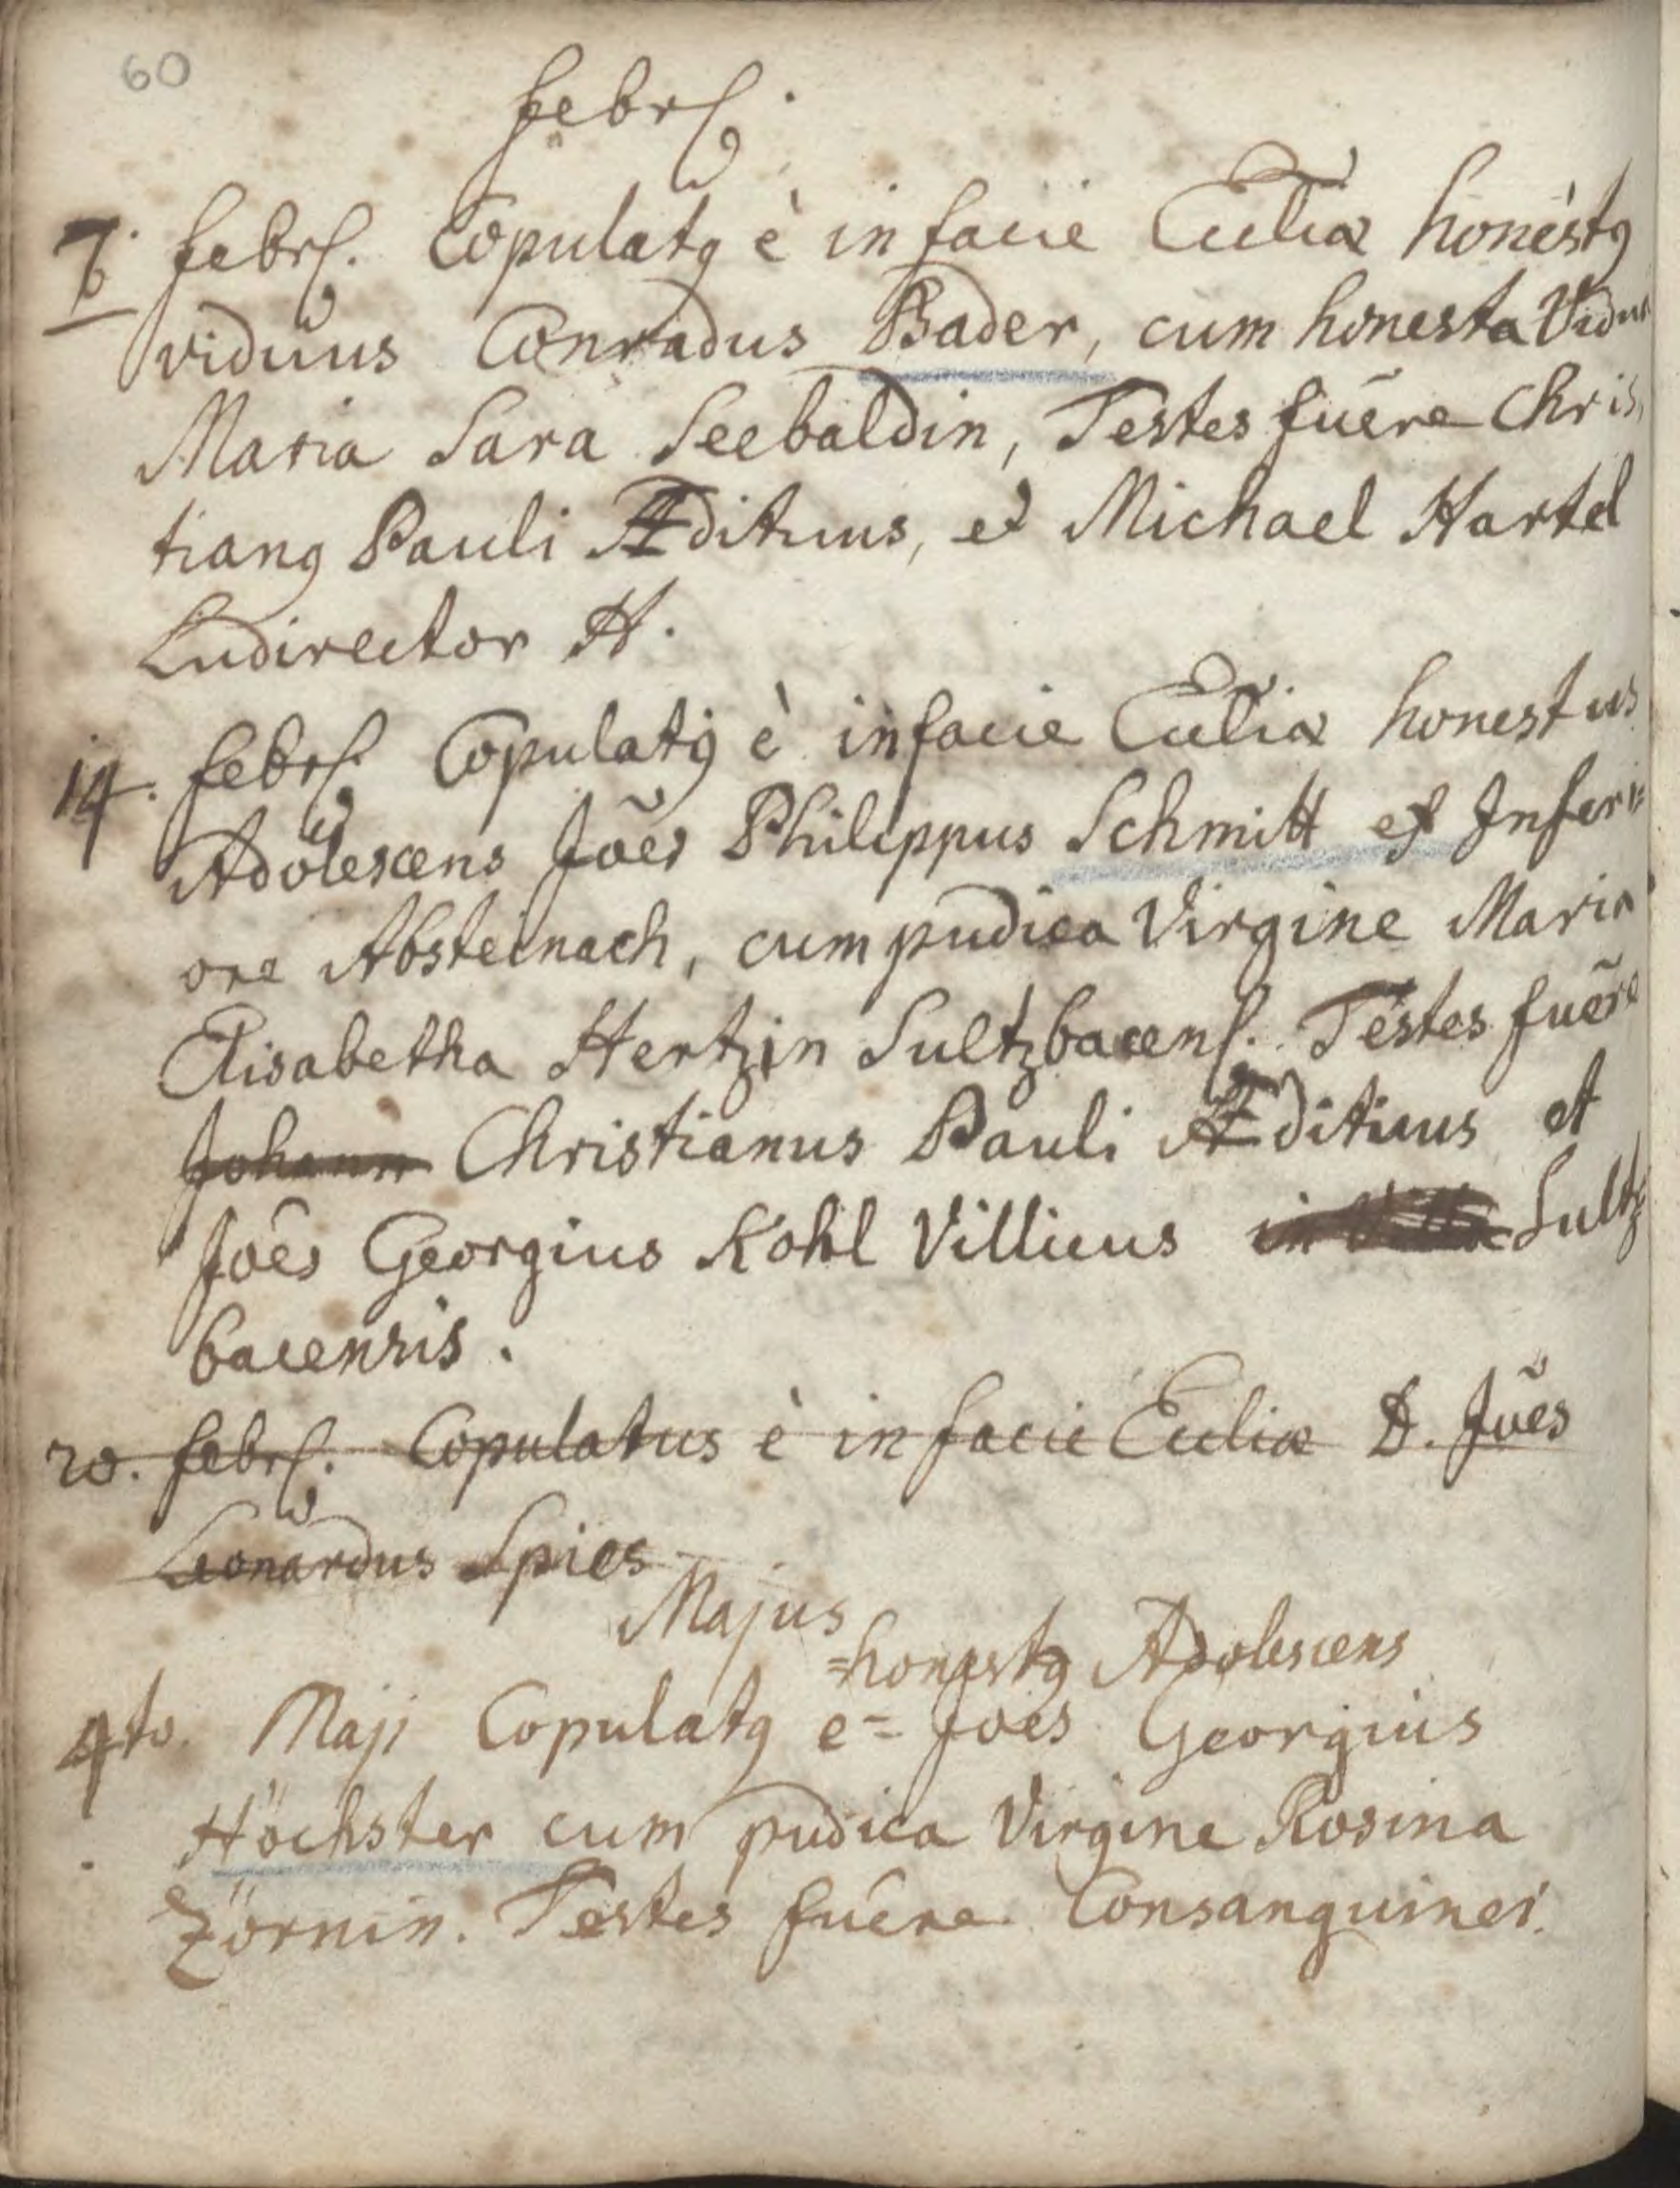 60
febrs.
7. febrs. Copulatq è in facie Ecclīæ honestq
viduus Conradus Bader, cum honesta Vidua
Maria Sara Seebaldin, Testes fuêre Chris,
tianq Pauli Ædituus, et Michael Hartel
Ludirector H.
14. febrs. Copulatq è in facie Ecclīæ honestus
Adolescens Joēs Philippus Schmitt ex Inferi=
ore Absteinach, cum pudica Virgine Maria
Elisabetha Hertzin Sultzbacens. Testes fuēre
Johann Christianus Pauli Ædituus et
Joês Georgius Kohl Villicus in Sultz
bacensis.
20. febrs. Copulatus è in facie Ecclīæ D. Joēs
Leonardus Spies
Majus
=honestq Adolescens
4to. Maji Copulatq e= Joēs Georgius
Höchster cum pudica Virgine Rosina
Zörnin. Testes fuêre Consanguinei.